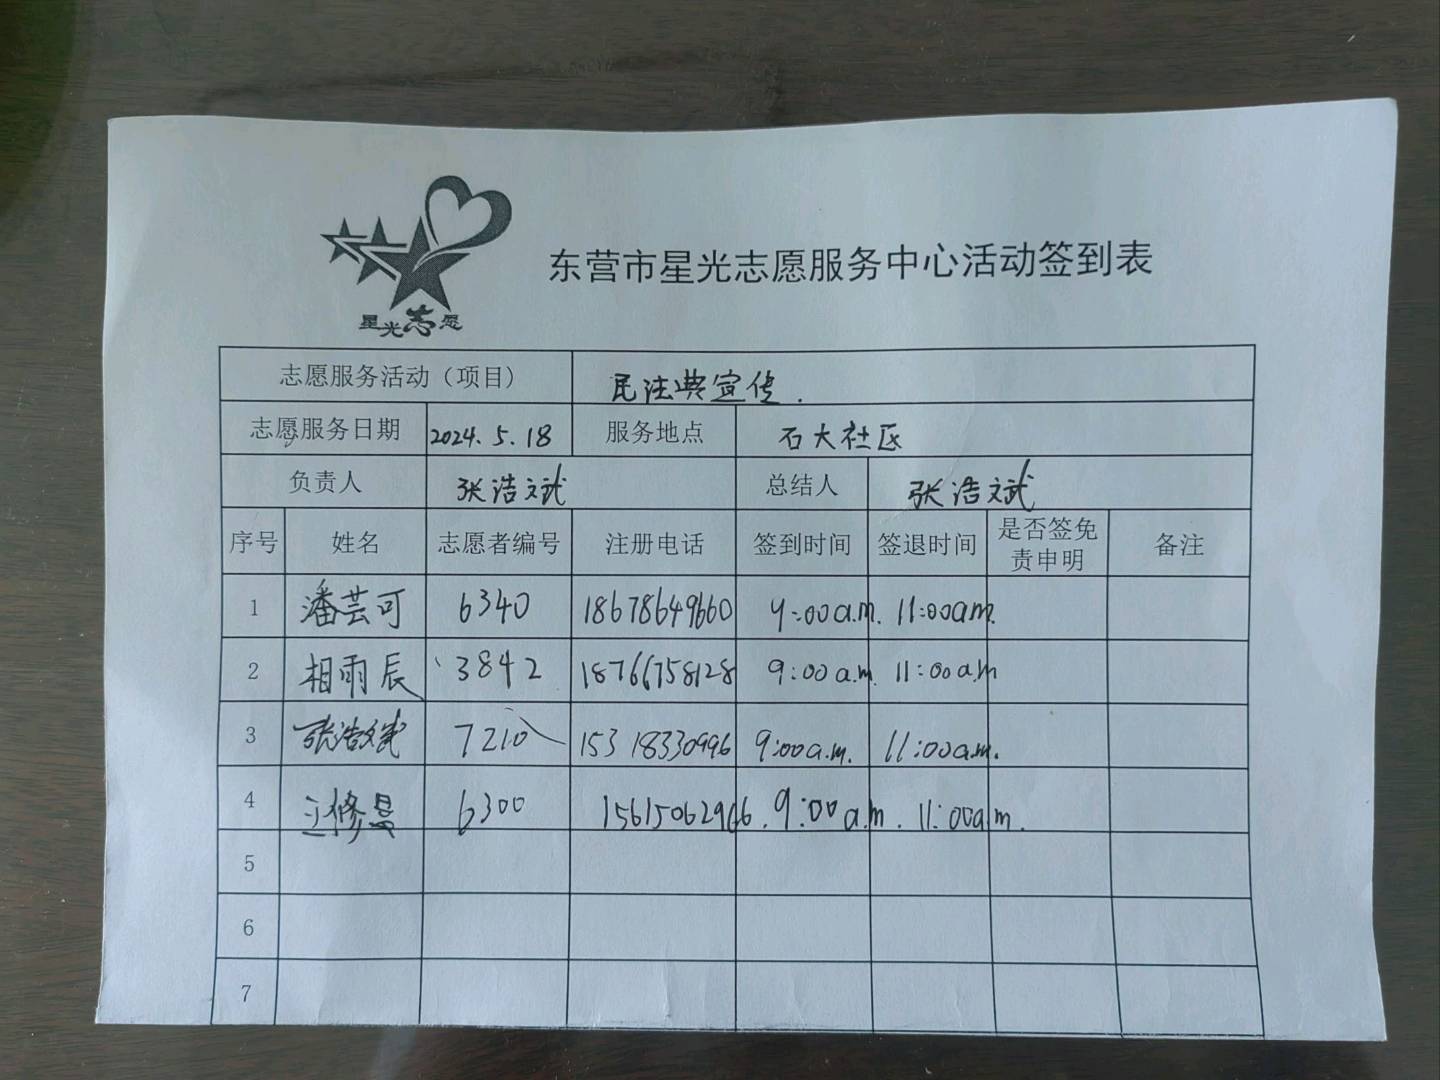 星光志愿
东营市星光志愿服务中心活动签到表
志愿服务活动（项目） 民法典宣传.
志愿服务日期 2024.5.18 服务地点 石大社区
负责人 张浩斌 总结人 张浩斌
序号 姓名 志愿者编号 注册电话 签到时间 签退时间 是否签免责申明 备注
1 潘芸可 6340 18678649660 9:00a.m. 11:00am.
2 相雨辰 3842 18766758128 9:00a.m. 11:00a.m
3 张浩斌 7210 15318330996 9:00a.m. 11:00a.m.
4 6300 15615062966. 9:00a.m. 11:00am.
5
6
7